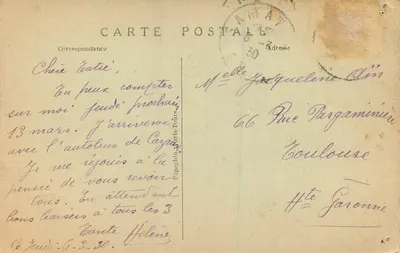 CARTE POSTALE
Correspondance
Adresse
Chère
Tu peux compter
sur moi jeudi prochain
13 mars. J'arriverai
avec l'autobus de
Je me réjouis à la
pensée de vous revoir
tous. En attendant
bons baisers à tous les 3
Tante Hélène
Jeudi 6-3-30
Melle Jacqueline
66 Rue Pargaminière
Toulouse
Hte Garonne